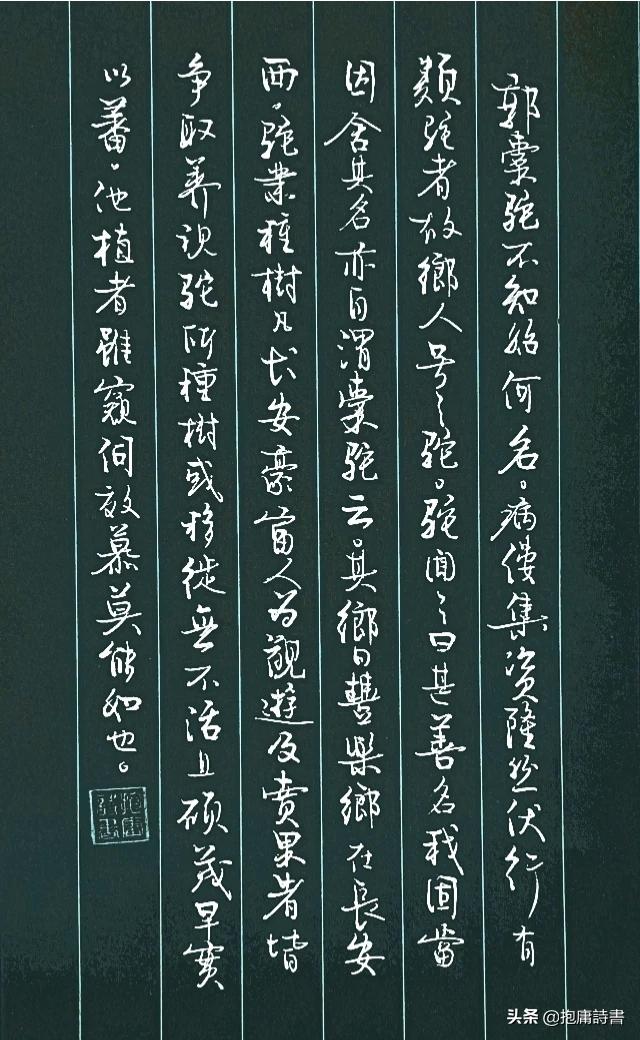 郭橐駝不知始何名。病僂集資隆然伏行有
類駝者故鄉人号之駝。駝聞之曰甚善名我固當
因舍其名亦自謂橐駝云。其鄉曰豐樂鄉在長安
西。駝業種樹凡长安豪富人为觀遊及賣果者皆
争取养視駝所種樹或移徙無不活且碩茂早實
以蕃。他植者雖窺伺效慕莫能如也。
抱庸詩書
头条 @抱庸詩書